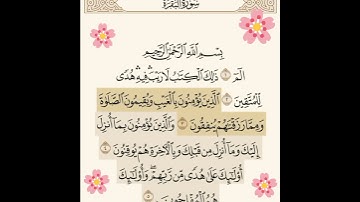 سُورَةُ الْبَقَرَةِ
بِسْمِ اللَّهِ الرَّحْمَٰنِ الرَّحِيمِ
الٓمٓ ۝١ ذَٰلِكَ الْكِتَابُ لَا رَيْبَ ۛ فِيهِ ۛ هُدًى
لِلْمُتَّقِينَ ۝٢ الَّذِينَ يُؤْمِنُونَ بِالْغَيْبِ وَيُقِيمُونَ الصَّلَوٰةَ
وَمِمَّا رَزَقْنَٰهُمْ يُنْفِقُونَ ۝٣ وَالَّذِينَ يُؤْمِنُونَ بِمَا أُنْزِلَ
إِلَيْكَ وَمَا أُنْزِلَ مِنْ قَبْلِكَ وَبِالْآخِرَةِ هُمْ يُوقِنُونَ ۝٤
أُولَٰئِكَ عَلَىٰ هُدًى مِنْ رَبِّهِمْ ۖ وَأُولَٰئِكَ
هُمُ الْمُفْلِحُونَ ۝٥